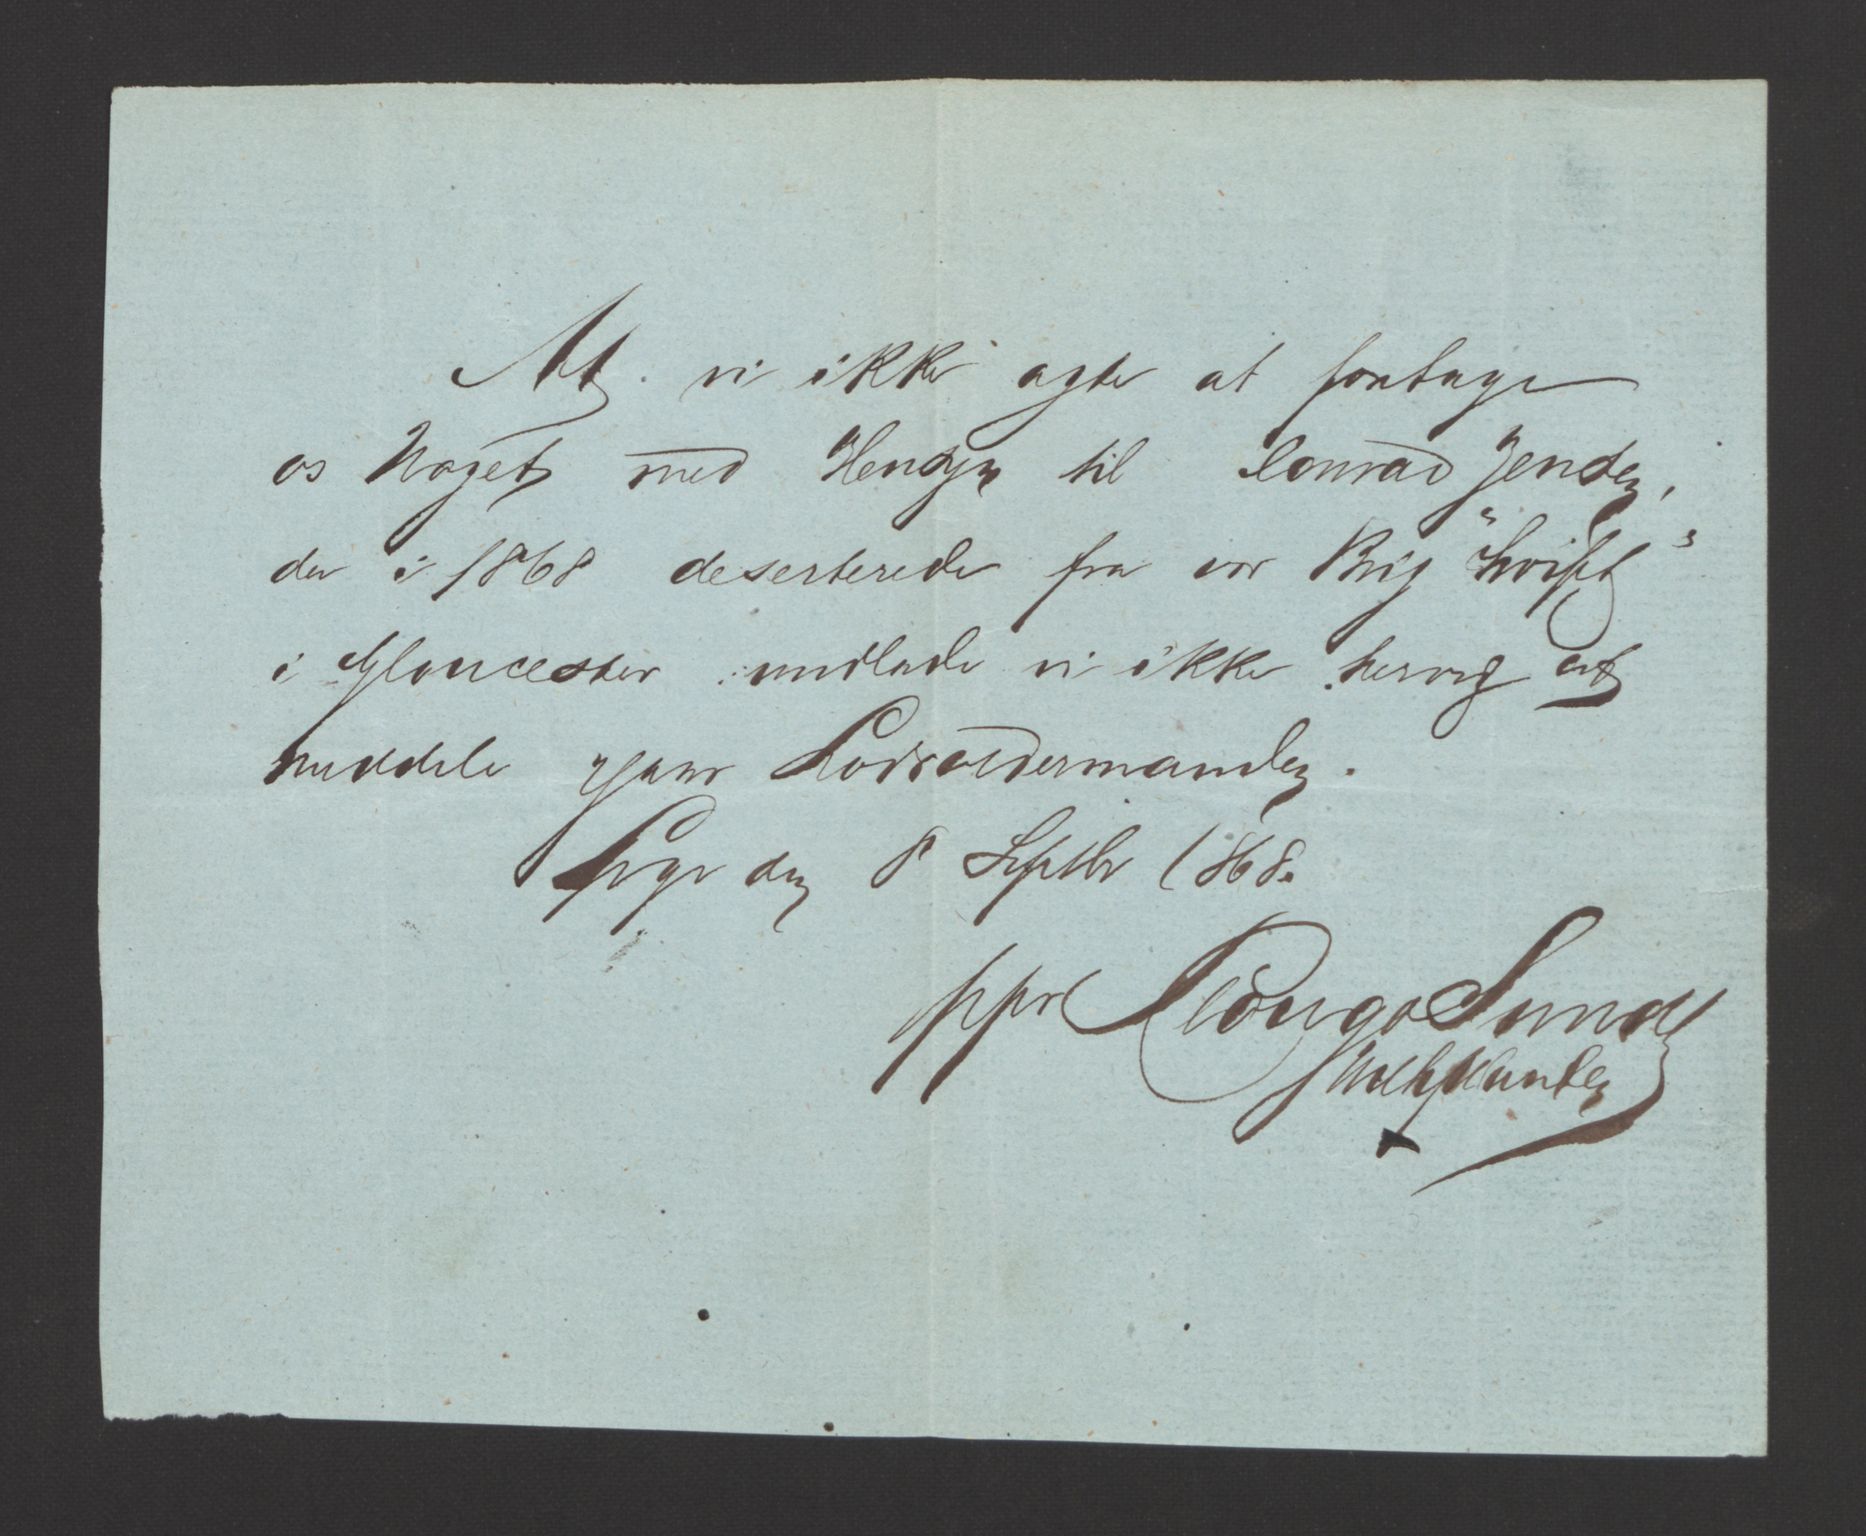 At vi ikke agter at foretage
os Noget med Hensyn til Conrad Jensen,
der i 1868 deserterede fra vor Brig "Swift"
i Gloucester undlade vi ikke herved at
meddele Hr Lodsoldermanden.
den 8 Septbr 1868.
ppr Sund